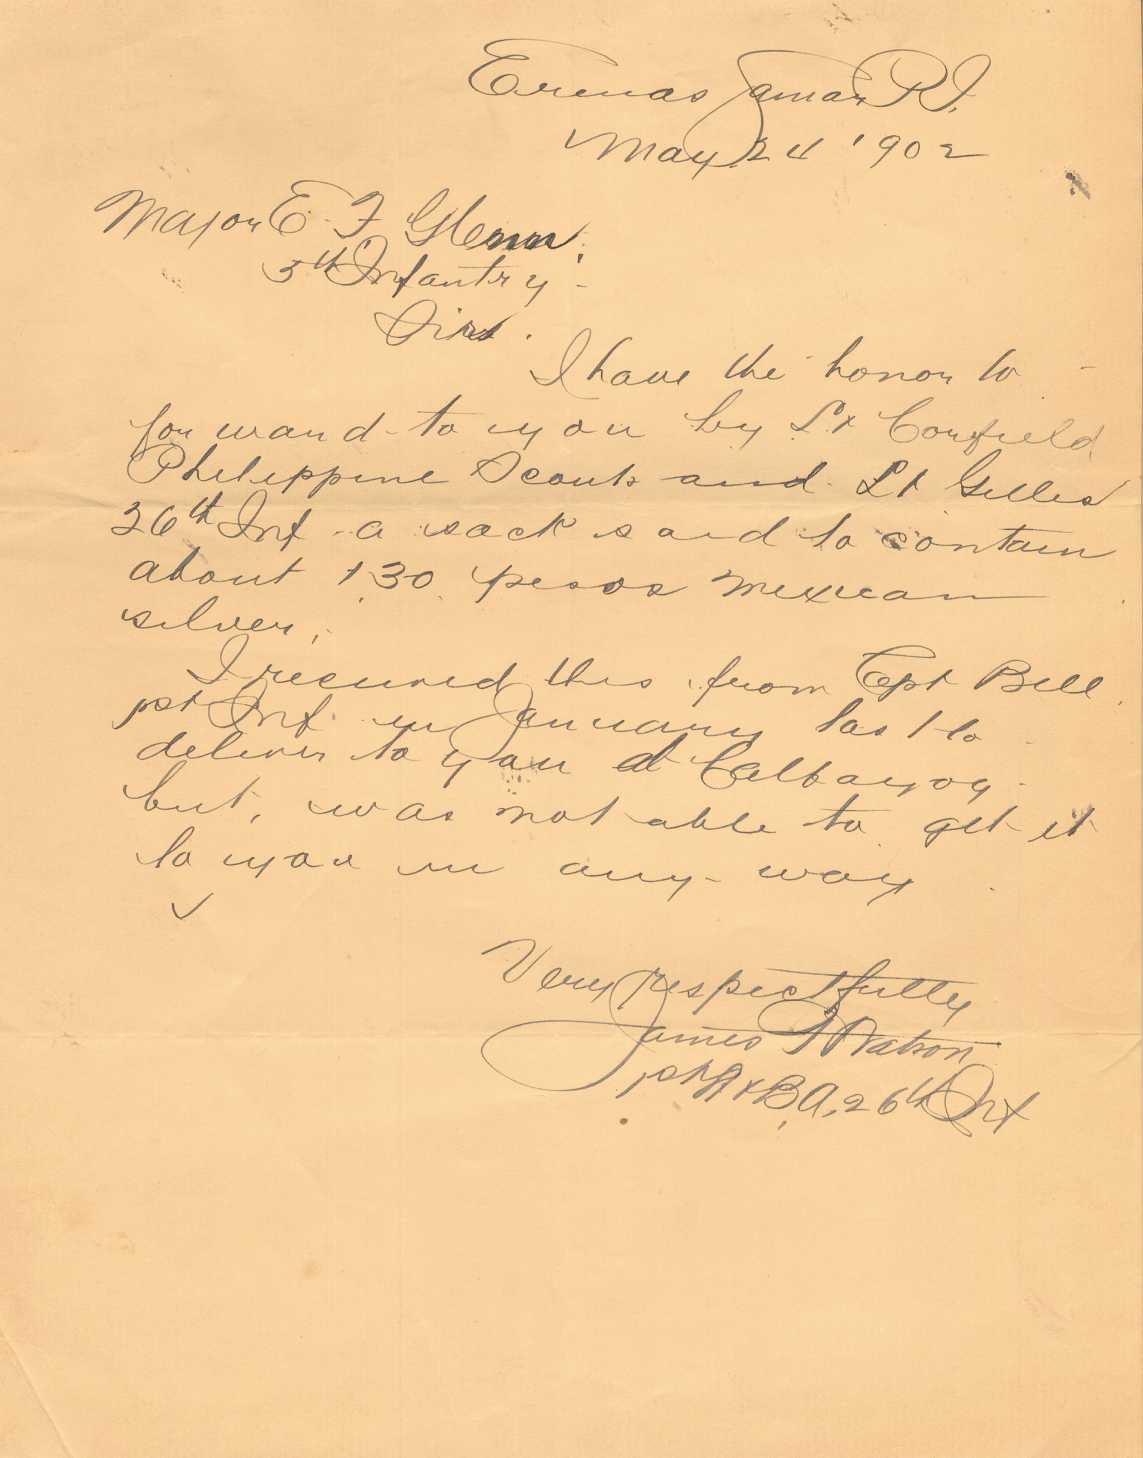 Erenas Samar P.I.
May 24 1902
Major E. F. Glenn,
5th Infantry -
Sir.
I have the honor to
forward to you by Lt Corfield
Philippine Scouts and Lt Gilles
26th Inf a sack said to contain
about 130 pesos Mexican
silver.
I received this from Cpt Bell
1st Inf in January last to
deliver to you at Calbayog
but, was not able to get it
to you in any-way
Very respectfully
James Watson
1st Lt B.A. 26th Inf